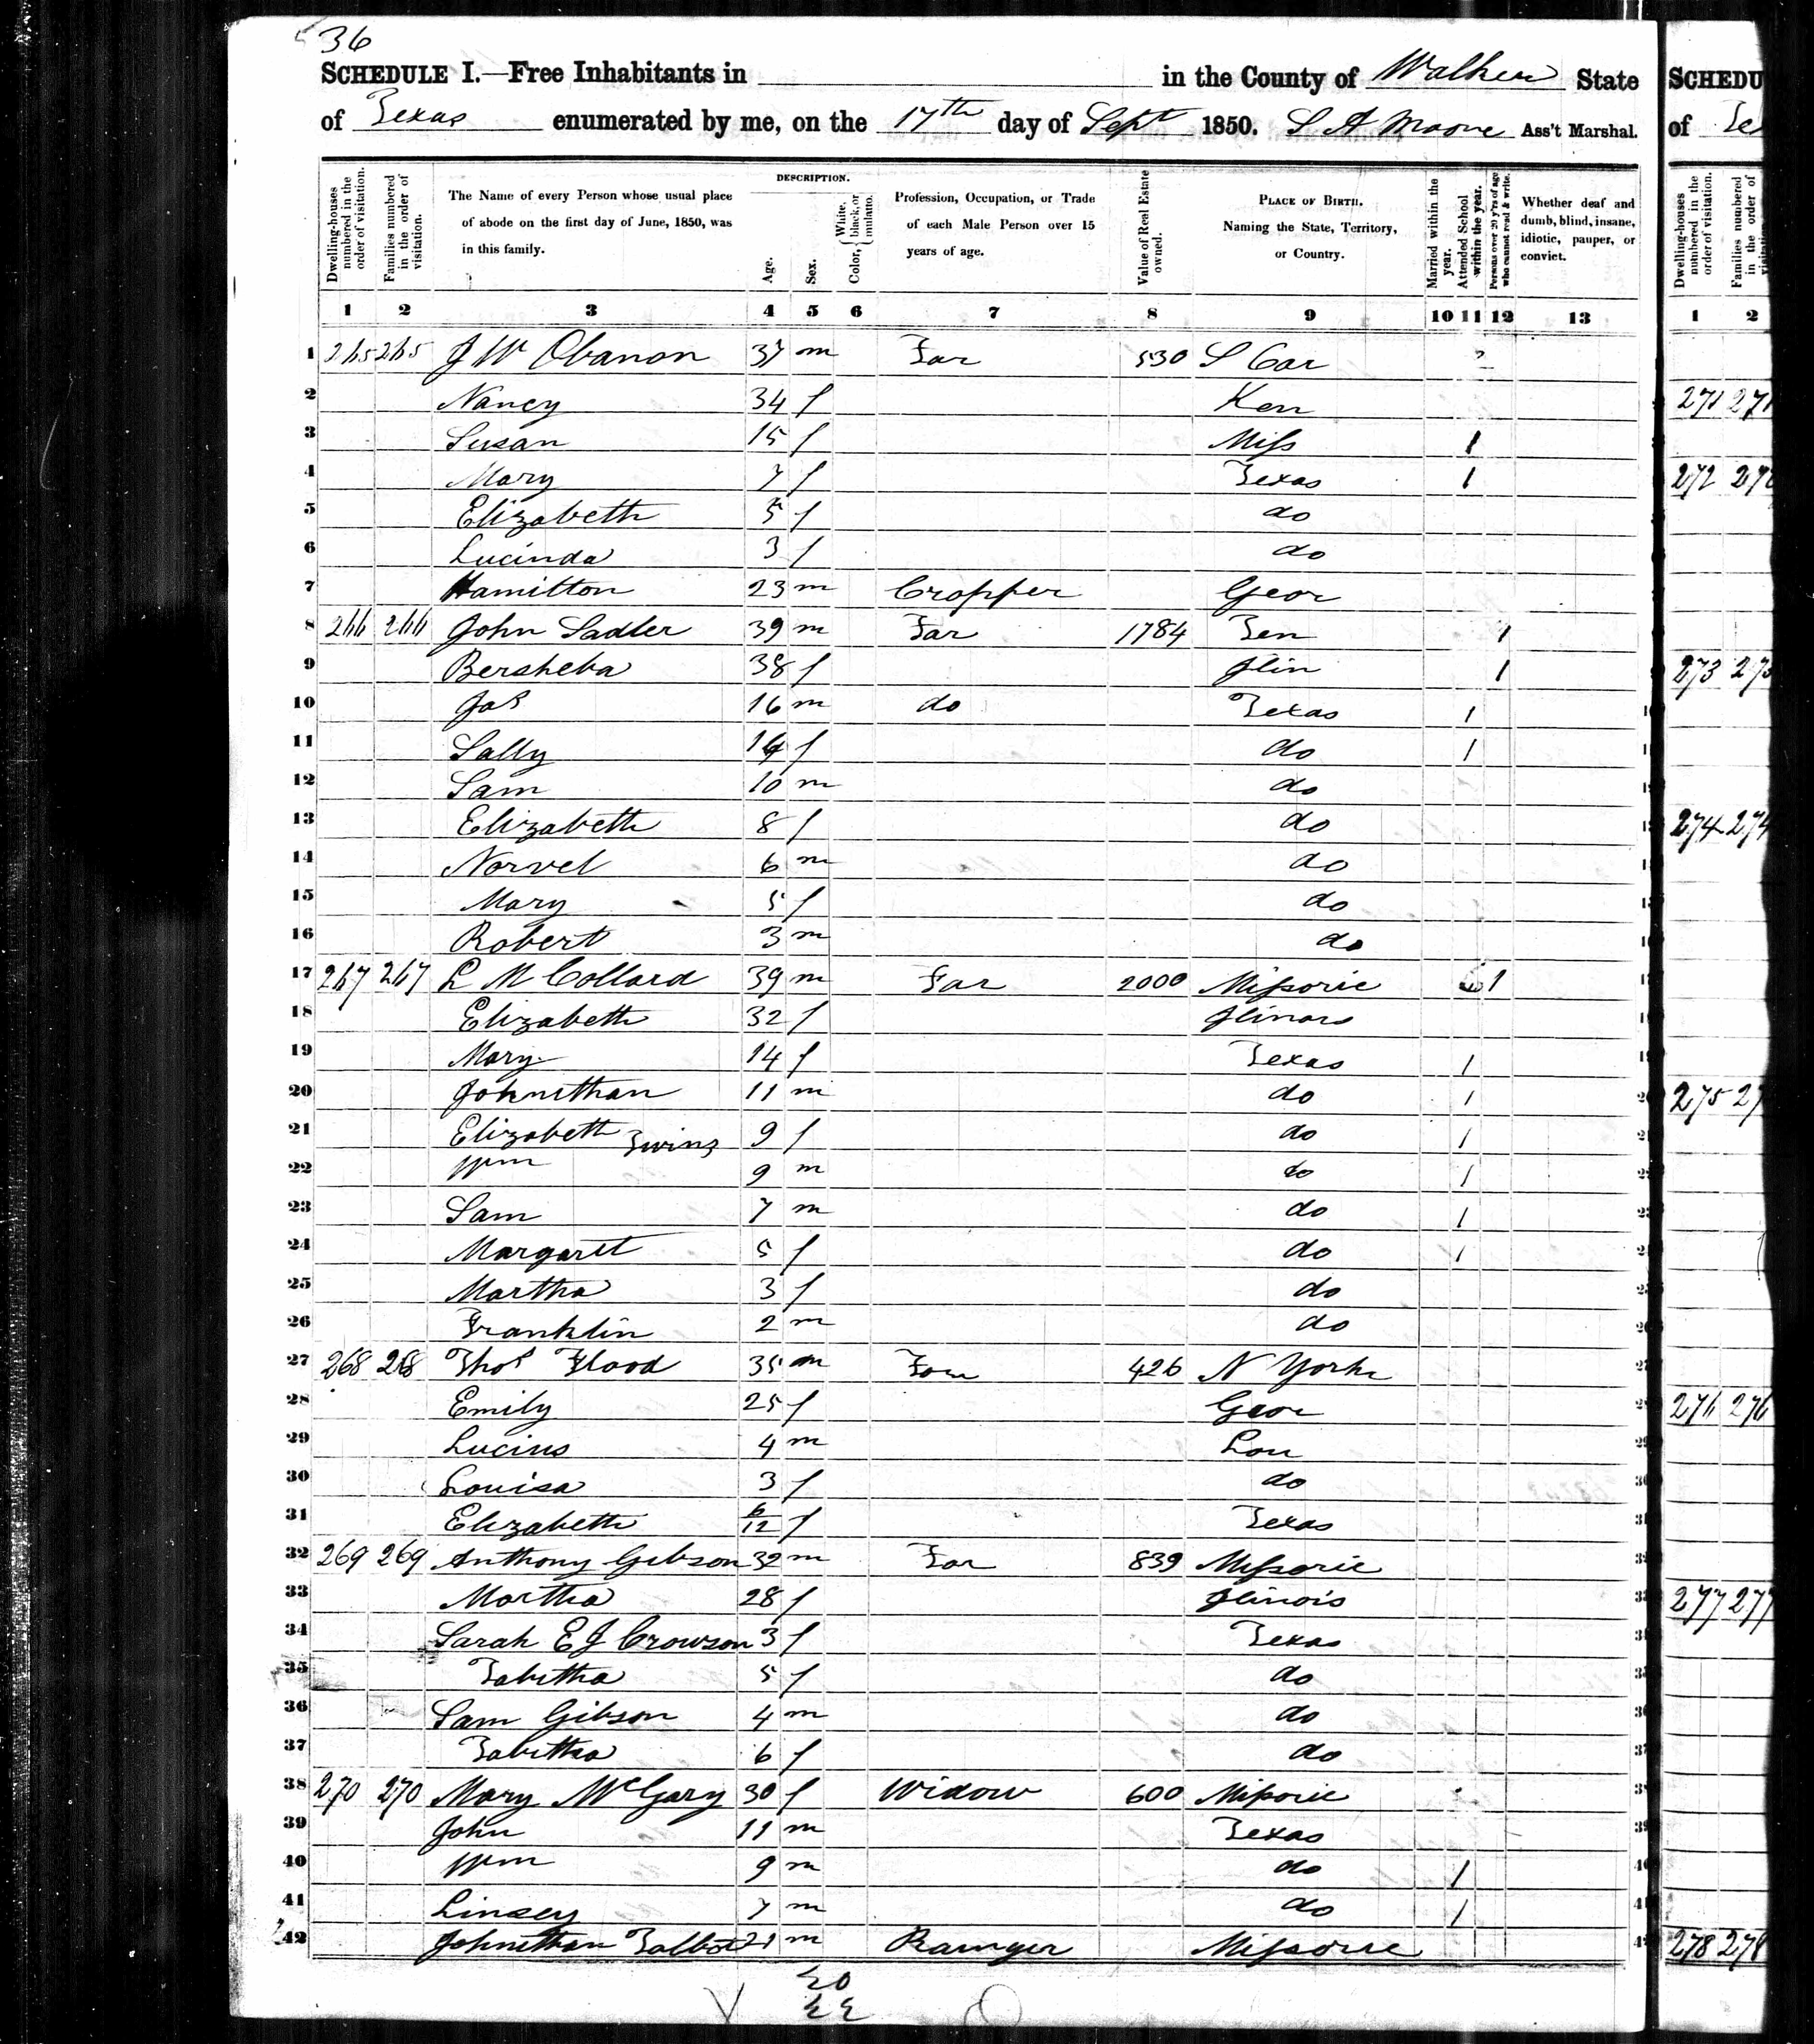 36
SCHEDULE I.—Free Inhabitants in in the County of Walker State
of Texas enumerated by me, on the 17th day of Sept 1850. S A Moore Ass't Marshal.
Dwelling-houses numbered in the order of visitation.
Families numbered in the order of visitation.
The Name of every Person whose usual place of abode on the first day of June, 1850, was in this family.
DESCRIPTION.
Age.
Sex.
Color, White, black, or mulatto.
Profession, Occupation, or Trade of each Male Person over 15 years of age.
Value of Real Estate owned.
PLACE OF BIRTH. Naming the State, Territory, or Country.
Married within the year.
Attended School within the year.
Persons over 20 y'rs of age who cannot read & write.
Whether deaf and dumb, blind, insane, idiotic, pauper, or convict.
1 2 3 4 5 6 7 8 9 10 11 12 13
1 265 265 J W Obanon 37 m Far 530 S Car
2 Nancy 34 f Ken
3 Susan 15 f Miss 1
4 Mary 7 f Texas 1
5 Elizabeth 5 f do
6 Lucinda 3 f do
7 Hamilton 23 m Cropper Geor
8 266 266 John Sadler 39 m Far 1784 Ten 1
9 Bersheba 38 f Ilin 1
10 Jas 16 m do Texas 1
11 Sally 14 f do 1
12 Sam 10 m do
13 Elizabeth 8 f do
14 Norvel 6 m do
15 Mary 5 f do
16 Robert 3 m do
17 267 267 L M Collard 39 m Far 2000 Missorie 1
18 Elizabeth 32 f Ilinors
19 Mary 14 f Texas 1
20 Johnithan 11 m do 1
21 Elizabeth Twins 9 f do 1
22 Wm 9 m do 1
23 Sam 7 m do 1
24 Margaret 5 f do 1
25 Martha 3 f do
26 Franklin 2 m do
27 268 268 Thos Flood 35 m Far 426 N York
28 Emily 25 f Geor
29 Lucius 4 m Lou
30 Louisa 3 f do
31 Elizabeth 6/12 f Texas
32 269 269 Anthony Gibson 32 m Far 839 Missorie
33 Martha 28 f Ilinois
34 Sarah E J Crowson 3 f Texas
35 Tabitha 5 f do
36 Sam Gibson 4 m do
37 Tabitha 6 f do
38 270 270 Mary McGary 30 f Widow 600 Missorie
39 John 11 m Texas
40 Wm 9 m do 1
41 Linsey 7 m do 1
42 Johnithan Talbot 21 m Rainger Missorie
20
22
SCHEDU
of Te
Dwelling-houses numbered in the order of visitation.
Families numbered in the order of
1 2
271 271
272 272
273 273
274 274
275 27
276 276
277 277
278 278